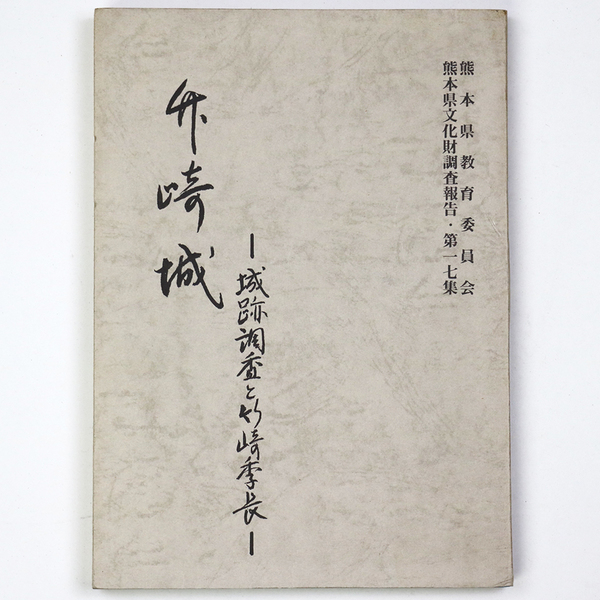 熊本県教育委員会
熊本県文化財調査報告・第一七集
竹崎城
ー城跡調査と竹崎季長ー